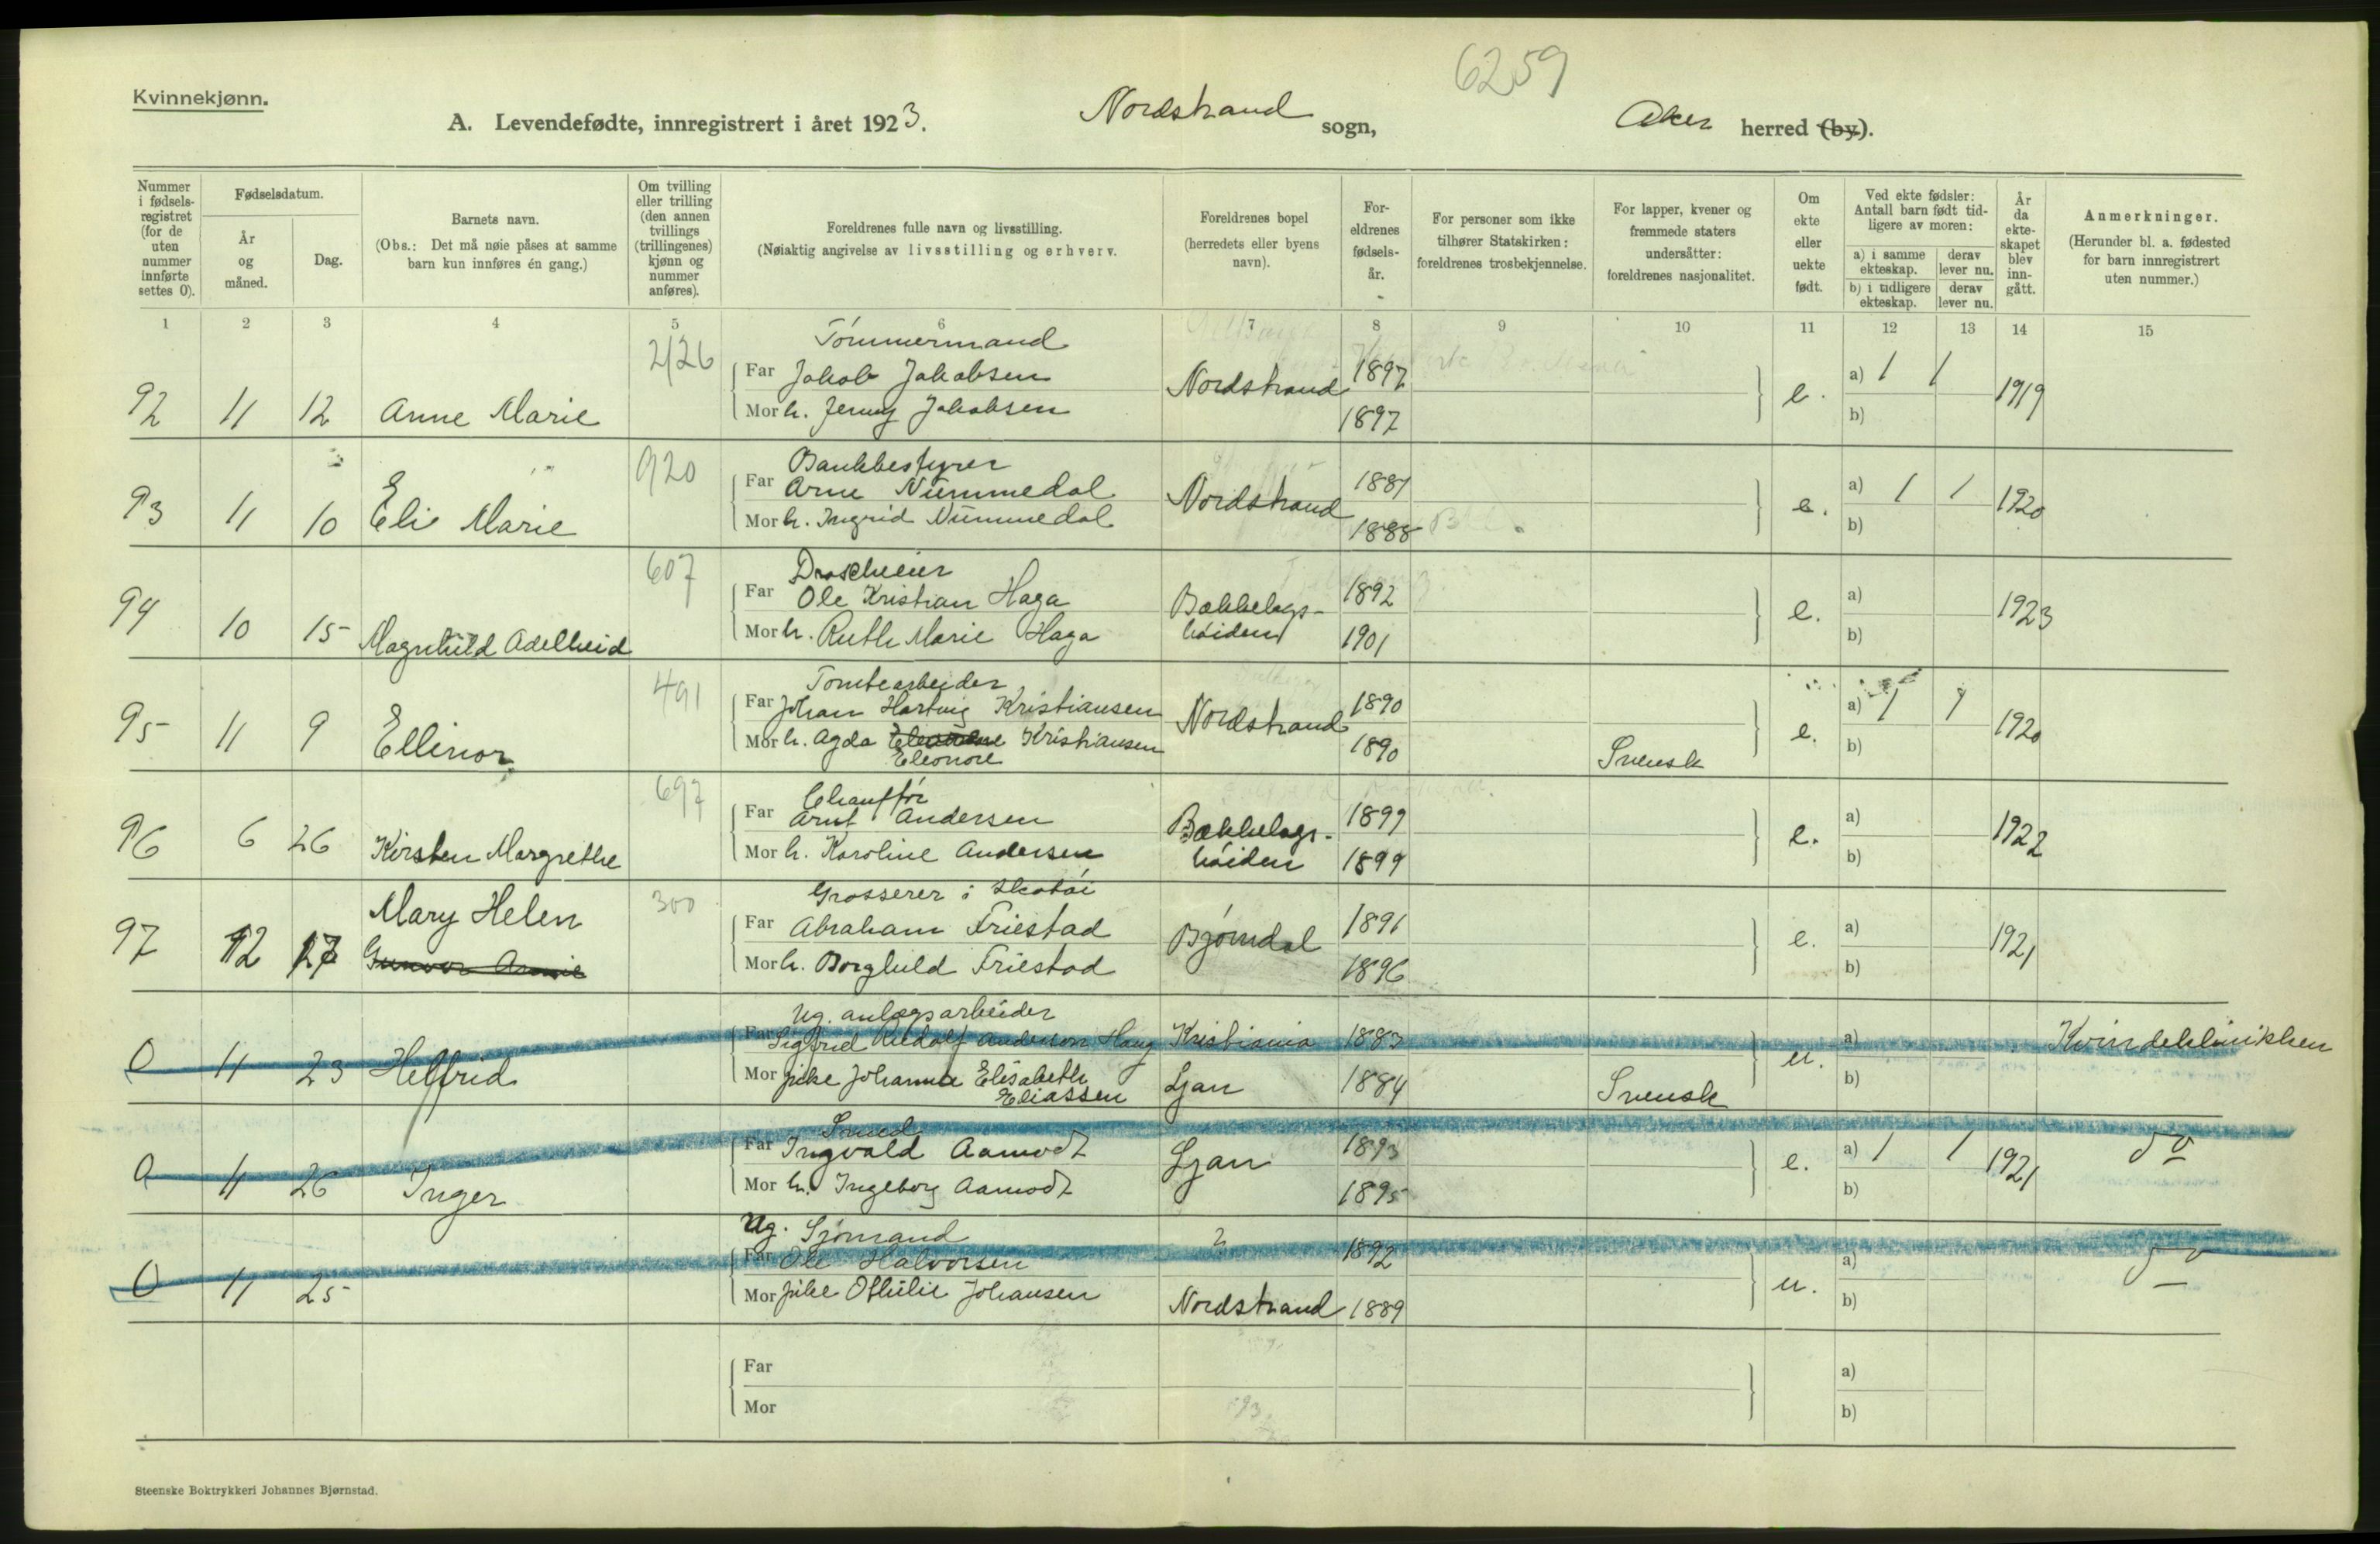 6259
Kvinnekjønn.
A. Levendefødte, innregistrert i året 1923. Nordstrand sogn, Aker herred (by).
Nummer i fødsels-registret (for de uten nummer innførte settes 0).
Fødselsdatum.
År og måned.
Dag.
Barnets navn.
(Obs.: Det må nøie påses at samme barn kun innføres én gang.)
Om tvilling eller trilling (den annen tvillings (trillingenes) kjønn og nummer anføres).
Foreldrenes fulle navn og livsstilling.
(Nøiaktig angivelse av livsstilling og erhverv.
Foreldrenes bopel (herredets eller byens navn).
For-eldrenes fødsels-år.
For personer som ikke tilhører Statskirken: foreldrenes trosbekjennelse.
For lapper, kvener og fremmede staters undersåtter: foreldrenes nasjonalitet.
Om ekte eller uekte født.
Ved ekte fødsler: Antall barn født tid-ligere av moren:
a) i samme ekteskap.
derav lever nu.
b) i tidligere ekteskap.
derav lever nu.
År da ekte-skapet blev inn-gått.
Anmerkninger.
(Herunder bl. a. fødested for barn innregistrert uten nummer.)
1 2 3 4 5 6 7 8 9 10 11 12 13 14 15
2/26 Tømmermand
Far Jakob Jakobsen 1897 a) 1 1
92 11 12 Anne Marie Nordstrand e. 1919
Mor h. Jenny Jakobsen 1897 b)
920 Bankbestyrer
Far Arne Nummedal 1881 a) 1 1
93 11 10 Eli Marie Nordstrand e. 1920
Mor h. Ingrid Nummedal 1888 b)
607 Droscheeier
Far Ole Kristian Haga 1892 a)
94 10 15 Magnhild Adelheid Bækkelags-høiden e. 1923
Mor h. Ruth Marie Haga 1901 b)
491 Tomtearbeider
Far Johan Hartvig Kristiansen 1890 a) 1 1
95 11 9 Ellinor Nordstrand e. 1920
Mor h. Agda Kristiansen 1890 Svensk b)
Eleonore
697 Chauffør
Far Arnt Andersen 1899 a)
96 6 26 Kirsten Margrethe Bækkelags-høiden e. 1922
Mor h. Karoline Andersen 1899 b)
300 Grosserer i skotøi
Mary Helen
Far Abraham Friestad 1891 a)
97 12 17 Gunvor Bjørndal e. 1921
Mor h. Borghild Friestad 1896 b)
Ug. anlægsarbeider
Far Sigfred Rudolf Anderson Haug Kristiania 1883 a) Kvindeklinikken
0 11 23 Helfrid u.
Mor pike Johanne Elisabeth Ljan 1884 Svensk b)
Eliassen
Smed
Far Ingvald Aamodt 1893 a) 1 1 do
0 11 26 Inger Ljan e. 1921
Mor h. Ingeborg Aamodt 1895 b)
Ug. Sjømand
Far Ole Halvorsen ? 1892 a) do
0 11 25 u.
Mor pike Othilie Johansen Nordstrand 1889 b)
Far a)
Mor b)
Steenske Boktrykkeri Johannes Bjørnstad.